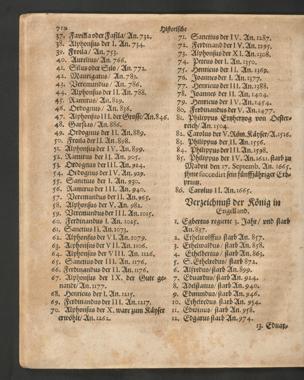 Historische
37. Favilla oder Fafila/ An. 732.
38. Alphonsus der I. An. 734.
39. Froila/ An. 753.
40. Aurelius/ An. 766.
41. Silus oder Silo/ An. 772.
42. Mauregatus/ An. 782.
43. Veremundus/ An. 786.
44. Alphonsus der II. An. 788.
45. Ramirus/ An. 819.
46. Ordognus/ An. 836.
47. Alphonsus III. der Grosse/ An. 846.
48. Garsias/ An. 886.
49. Ordognus der II. An. 889.
50. Froila der II. An. 898.
51. Alphonsus der IV. An. 899.
52. Ramirus der II. An. 905.
53. Ordognus der III. An. 924.
54. Ordognus der IV. An. 929.
55. Sanctius der I. An. 930.
56. Ramirus der III. An. 940.
57. Veremundus der II. An. 965.
58. Alphonsus der V. An. 982.
59. Veremundus der III. An. 1015.
60. Ferdinandus I. An. 1025.
61. Sanctus II. An. 1073.
62. Alphonsus der VI. An. 1073.
63. Alphonsus der VII. An. 1106.
64. Alphonsus der VIII. An. 1126.
65. Sanctius der III. An. 1176.
66. Ferdinandus der II. An. 1176.
67. Alphonsus der IX. der Gute ge-
nandt/ An. 1177.
68. Henricus der I. An. 1215.
69. Ferdinandus der III. An. 1217.
70. Alphonsus der X. ward zum Käyser
erwöhlt/ An. 1262.
71. Sanctius der IV. An. 1287.
72. Ferdinand der IV. An. 1295.
73. Alphonsus der XI. An. 1308.
74. Petrus der I. An. 1350.
75. Henricus der II. An. 1369.
76. Joannes der I. An. 1377.
77. Henricus der III. An. 1388.
78. Joannes der II. An. 1404.
79. Henricus der IV. An. 1454.
80. Ferdinandus der V. An. 1477.
81. Philippus Ertzhertzog von Oester-
reich/ An. 1504.
82. Carolus der V. Röm. Käyser/ A. 1516.
83. Philippus der II. An. 1556.
84. Philippus der III. An. 1598.
85. Philippus der IV. An. 1621. starb zu
Madrit den 17. Septemb. An. 1665.
ihme succedirt sein fünffjähriger Erb-
printz.
86. Carolus II. An. 1665.
Verzeichnuß der König in
Engelland.
1. Egbertus regierte 3. Jahr/ und starb
An. 837.
2. Ethelwolffus/ starb An. 857.
3. Ethelwaldus/ starb An. 858.
4. Ethelbertus/ starb An. 863.
5. S. Etheldredus/ starb 872.
6. Alfredus/ starb An. 899.
7. Eduardus/ starb An. 924.
8. Adelstanus/ starb An. 940.
9. Edmundus/ starb An. 946.
10. Ethelredus/ starb An. 954.
11. Eduinus/ starb An. 958.
12. Edgarus starb An. 974.
13. Eduar-